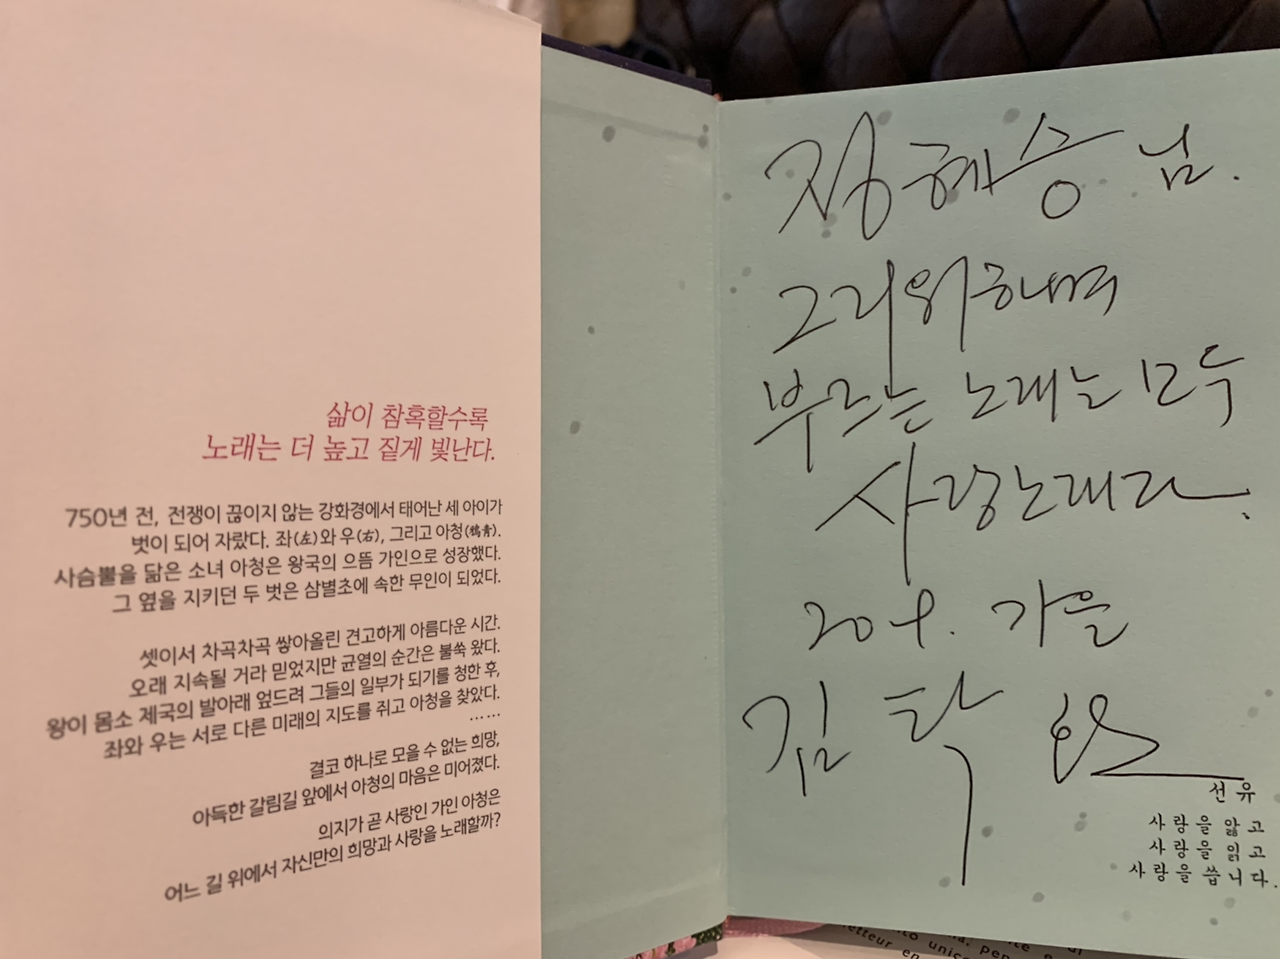 삶이 참혹할수록
노래는 더 높고 짙게 빛난다.
750년 전, 전쟁이 끊이지 않는 강화경에서 태어난 세 아이가
벗이 되어 자랐다. 좌(左)와 우(右), 그리고 아청(鴉靑).
사슴뿔을 닮은 소녀 아청은 왕국의 으뜸 가인으로 성장했다.
그 옆을 지키던 두 벗은 삼별초에 속한 무인이 되었다.
셋이서 차곡차곡 쌓아올린 견고하게 아름다운 시간.
오래 지속될 거라 믿었지만 균열의 순간은 불쑥 왔다.
왕이 몸소 제국의 발아래 엎드려 그들의 일부가 되기를 청한 후,
좌와 우는 서로 다른 미래의 지도를 쥐고 아청을 찾았다.
……
결코 하나로 모을 수 없는 희망,
아득한 갈림길 앞에서 아청의 마음은 미어졌다.
의지가 곧 사랑인 가인 아청은
어느 길 위에서 자신만의 희망과 사랑을 노래할까?
정혜승 님.
그리워하며
부르는 노래는 모두
사랑노래라.
가을
김탁환
선유
사랑을 앓고
사랑을 읽고
사랑을 씁니다.